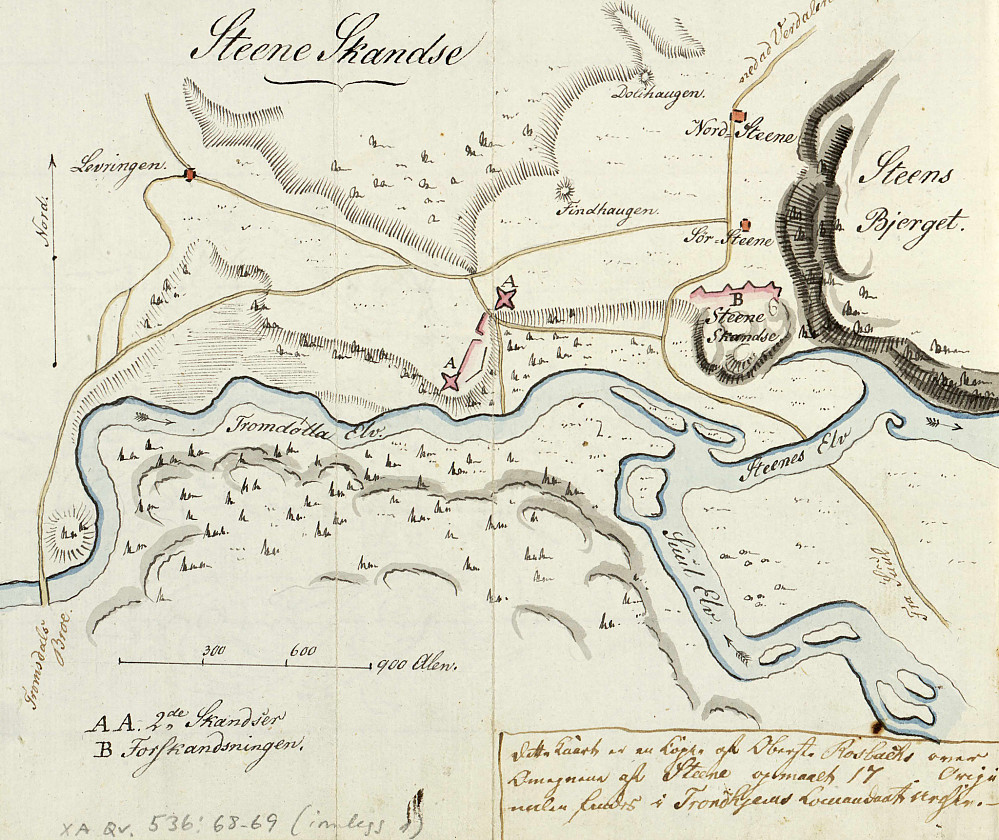 Steene Skandse
nedad Verdalen
Dolihaugen.
Nord-Steene
Levringen.
Steens
Bjerget.
Nord.
Findhaugen.
Sör-Steene
A
B
Steene
Skandse
A
Tromdölla Elv.
Steenes Elv
Elv
Fra
Tromsdals
Broe.
300 600 900 Alen.
AA. 2de Skandser
B Forskandsningen.
Dette Kaart er en Kopie af Oberst Rosbachs over
Omegnene af Steene opmaalt 17 Origi
nalen findes i Trondhjems Comandants
XA Qv. 536: 68-69 (innlegg 1)